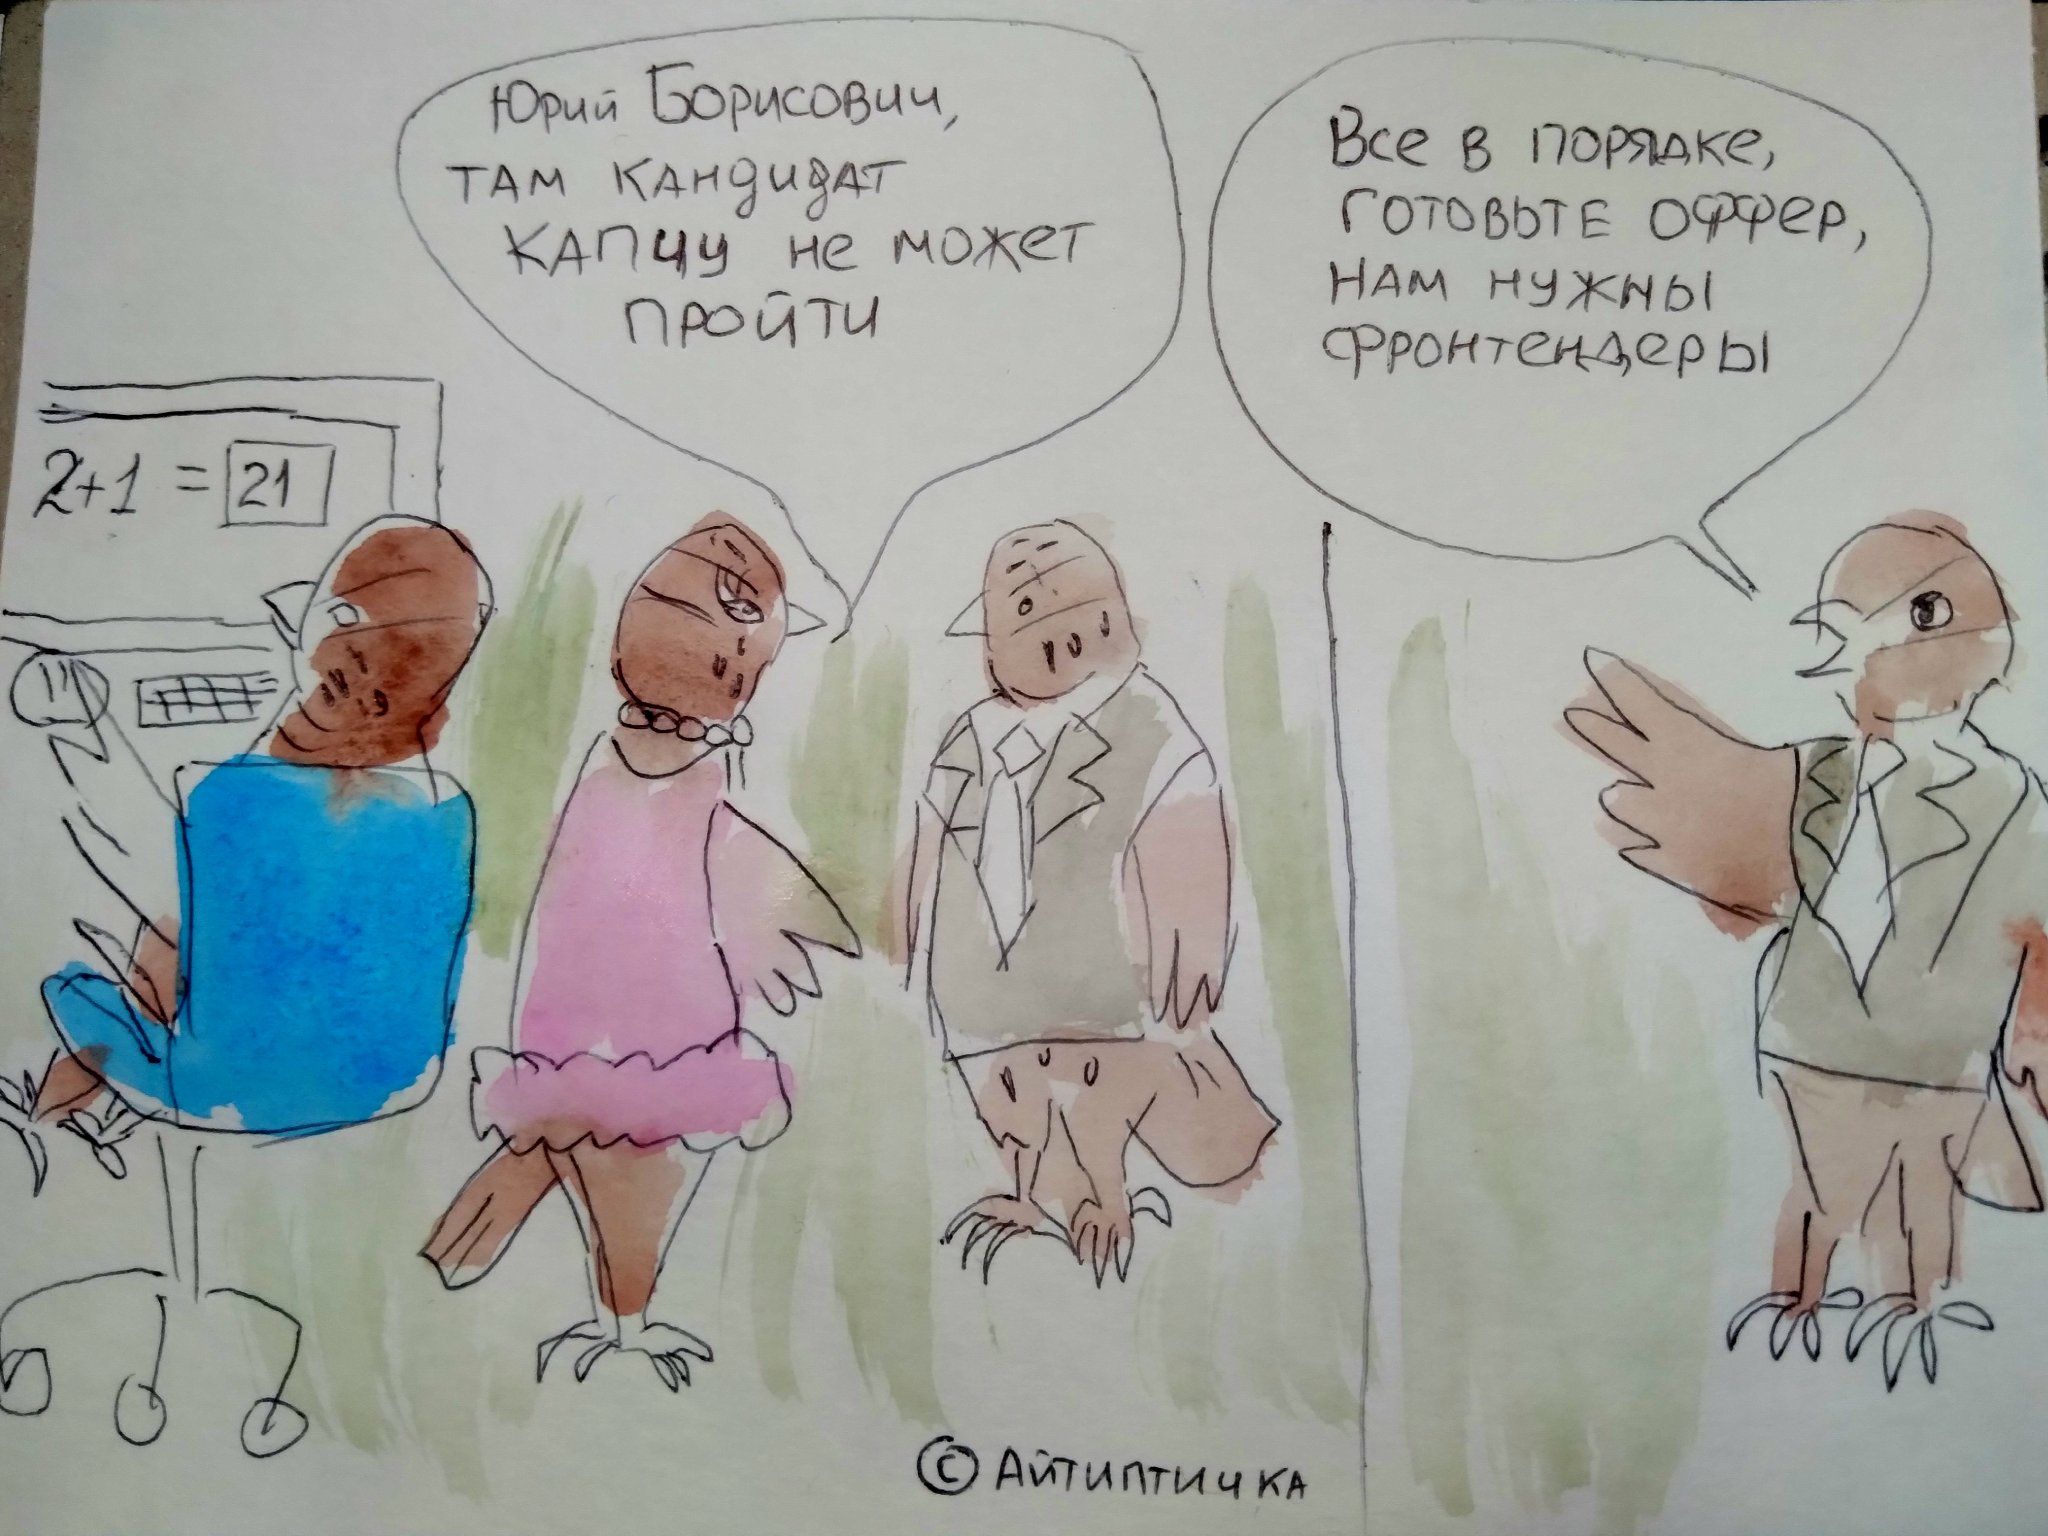 Юрий Борисович,
там кандидат
капчу не может
пройти
Все в порядке,
готовьте оффер,
нам нужны
фронтендеры
2+1 = 21
© Айтиптичка